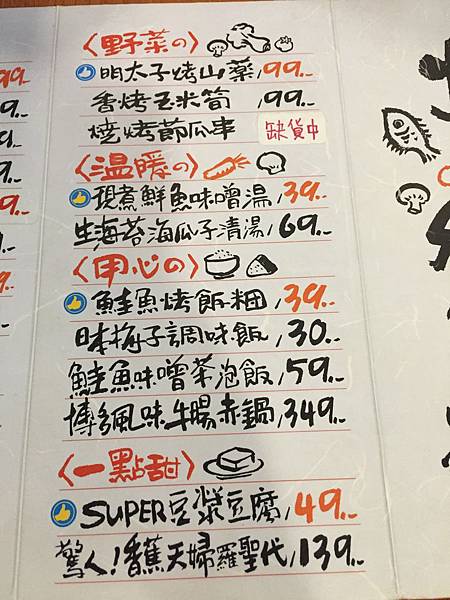 〈野菜の〉
明太子烤山藥/99.-
香烤玉米筍/99.-
燒烤節瓜串 缺貨中
〈温暖の〉
現煮鮮魚味噌湯/39.-
生海苔海瓜子清湯/69.-
〈用心の〉
鮭魚烤飯糰/39.-
日本梅子調味飯/30.-
鮭魚味噌茶泡飯/59.-
博多風味牛腸赤鍋/349.-
〈一點甜〉
SUPER豆漿豆腐/49.-
驚人!香蕉天婦羅聖代/139.-